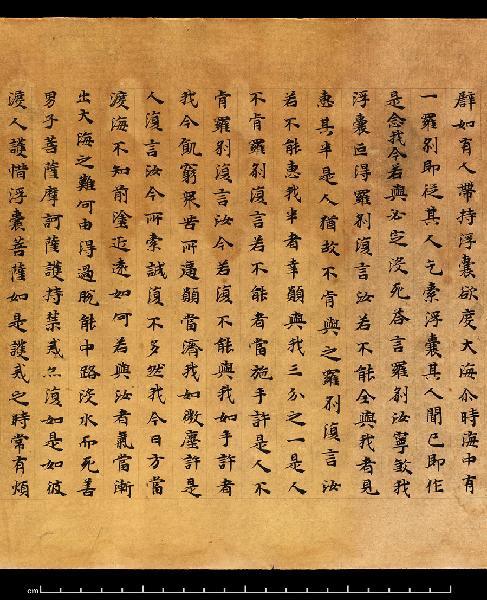 辟如有人帶持浮囊欲度大海尒時海中有
一羅剎即從其人乞索浮囊其人聞已即作
是念我今若與必定沒死荅言羅剎汝寧煞我
浮囊叵得羅剎復言汝若不能全與我者見
惠其半是人猶故不肯與之羅剎復言汝
若不能惠我半者幸願與我三分之一是人
不肯羅剎復言若不能者當施手許是人不
肯羅剎復言汝今若復不能與我如手許者
我今飢窮眾苦所逼願當濟我如微塵許是
人復言汝今所索誠復不多然我今日方當
渡海不知前塗近遠如何若與汝者氣當漸
出大海之難何由得過脫能中路沒水而死善
男子菩薩摩訶薩護持禁戒亦復如是如彼
渡人護惜浮囊菩薩如是護戒之時常有煩
cm